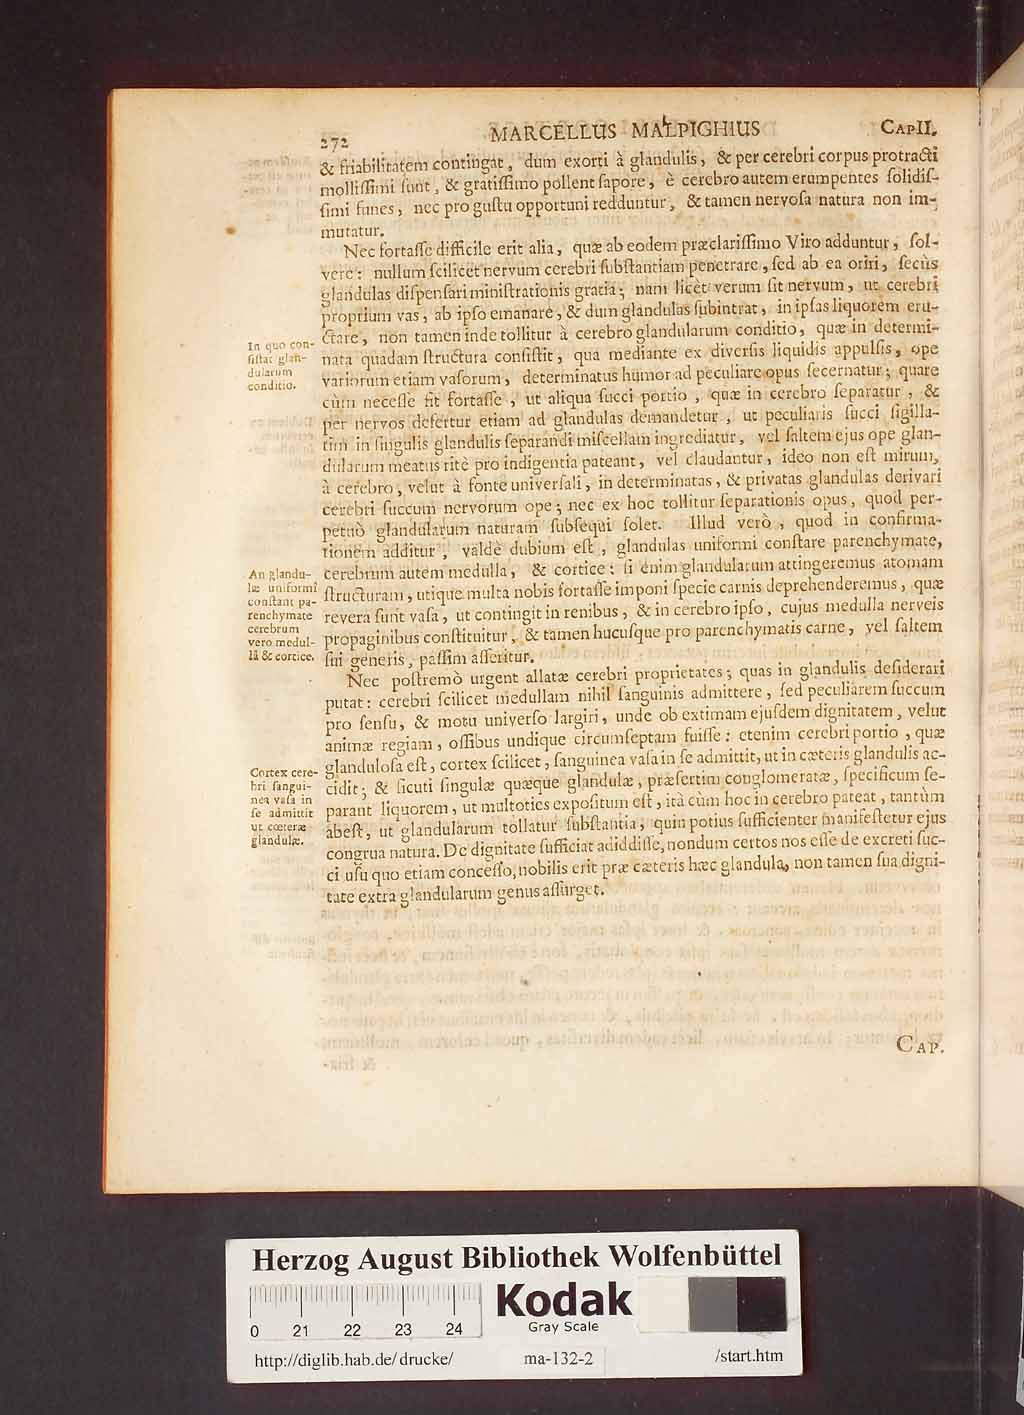 272 MARCELLUS MALPIGHIUS CAP II.
& friabilitatem contingat, dum exorti à glandulis, & per cerebri corpus protracti
mollissimi sunt, & gratissimo pollent sapore, è cerebro autem erumpentes solidis-
simi funes, nec pro gustu opportuni redduntur, & tamen nervosa natura non im-
mutatur.
Nec fortasse difficile erit alia, quæ ab eodem præclarissimo Viro adduntur, sol-
vere: nullum scilicet nervum cerebri substantiam penetrare, sed ab ea oriri, secùs
glandulas dispensari ministrationis gratia; nam licet verum sit nervum, ut cerebri
proprium vas, ab ipso emanare, & dum glandulas subintrat, in ipsas liquorem eru-
ctare, non tamen inde tollitur à cerebro glandularum conditio, quæ in determi-
nata quadam structura consistit, qua mediante ex diversis liquidis appulsis, ope
variorum etiam vasorum, determinatus humor ad peculiare opus secernatur; quare
cùm necesse sit fortasse, ut aliqua succi portio, quæ in cerebro separatur, &
per nervos defertur etiam ad glandulas demandetur, ut peculiaris succi sigilla-
tim in singulis glandulis separandi miscellam ingrediatur, vel saltem ejus ope glan-
dularum meatus ritè pro indigentia pateant, vel claudantur, ideo non est mirum,
à cerebro, velut à fonte universali, in determinatas, & privatas glandulas derivari
cerebri succum nervorum ope; nec ex hoc tollitur separationis opus, quod per-
petuò glandularum naturam subsequi solet. Illud verò, quod in confirma-
tionem additur, valdè dubium est, glandulas uniformi constare parenchymate,
cerebrum autem medulla, & cortice: si enim glandularum attingeremus atomam
structuram, utique multa nobis fortasse imponi specie carnis deprehenderemus, quæ
revera sunt vasa, ut contingit in renibus, & in cerebro ipso, cujus medulla nerveis
propaginibus constituitur, & tamen hucusque pro parenchymatis carne, vel saltem
sui generis, passim asseritur.
Nec postremò urgent allatæ cerebri proprietates; quas in glandulis desiderari
putat: cerebri scilicet medullam nihil sanguinis admittere, sed peculiarem succum
pro sensu, & motu universo largiri, unde ob extimam ejusdem dignitatem, velut
animæ regiam, ossibus undique circumseptam fuisse: etenim cerebri portio, quæ
glandulosa est, cortex scilicet, sanguinea vasa in se admittit, ut in cæteris glandulis ac-
cidit; & sicuti singulæ quæque glandulæ, præsertim conglomeratæ, specificum se-
parant liquorem, ut multoties expositum est, ità cùm hoc in cerebro pateat, tantùm
abest, ut glandularum tollatur substantia, quin potius sufficienter manifestetur ejus
congrua natura. De dignitate sufficiat adiddisse, nondum certos nos esse de excreti suc-
ci usu quo etiam concesso, nobilis erit præ cæteris hæc glandula, non tamen sua digni-
tate extra glandularum genus assurget.
In quo con-
sistat glan-
dularum
conditio.
An glandu-
læ uniformi
constant pa-
renchymate
cerebrum
vero medul-
lâ & cortice.
Cortex cere-
bri sangui-
nea vasa in
se admittit
ut cæteræ
glandulæ.
CAP.
Herzog August Bibliothek Wolfenbüttel
0 21 22 23 24
Kodak
Gray Scale
http://diglib.hab.de/drucke/ ma-132-2 /start.htm